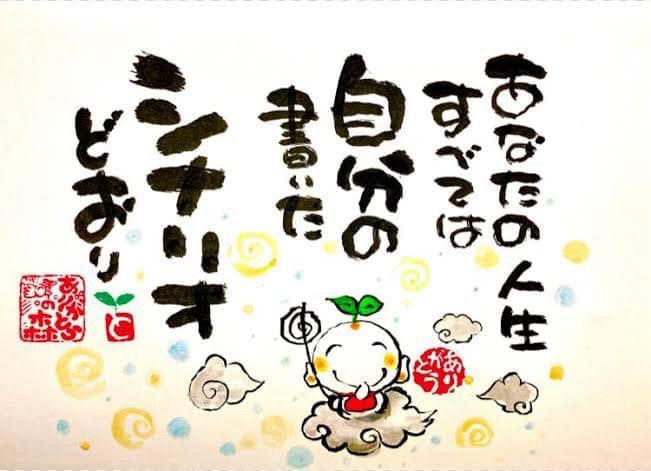 あなたの人生
すべては
自分の
書いた
シナリオ
どおり
ありがとう